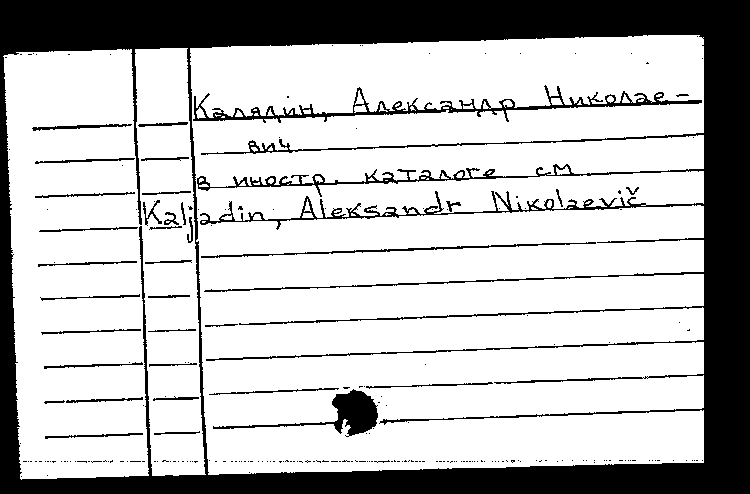 Калядин, Александр Николае-
вич
в иностр. каталоге см
Kaljadin, Aleksandr Nikolaevič